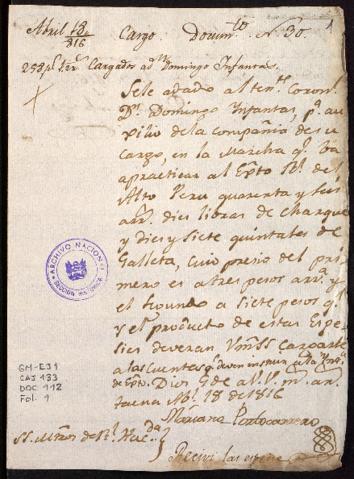 Abril 18/816 Cargo. Docum.to N. 30. 1
Cargados a d.n Domingo Infantas.
Se le a dado al ten.te Coron.l
D.n Domingo Infantas, p.a au
xilio de la compañia de su
Cargo, en la Marcha q.e va
a practicar al Exto Rl. del
Alto Peru quarenta y seis
arr.s dies libras de charque
y dies y siete quintales de
Galleta, cuio presio del pri
mero es a tres pesos arr.a y
el segundo a siete pesos q.l
y el producto de estas Espe
sies deveran Vmds Cargarle
a las Cuentas q.e deven
de Exto. Dios G.de a V. m.s an.s
Tacna 18 de 1816
Mariano Portocarrero
S.S. Mtros de Rl. Haz.da
Reciví las especies
ARCHIVO NACIONAL
SECCION HISTORICA
GM-EJ1
CAJ 133
DOC 112
Fol. 1